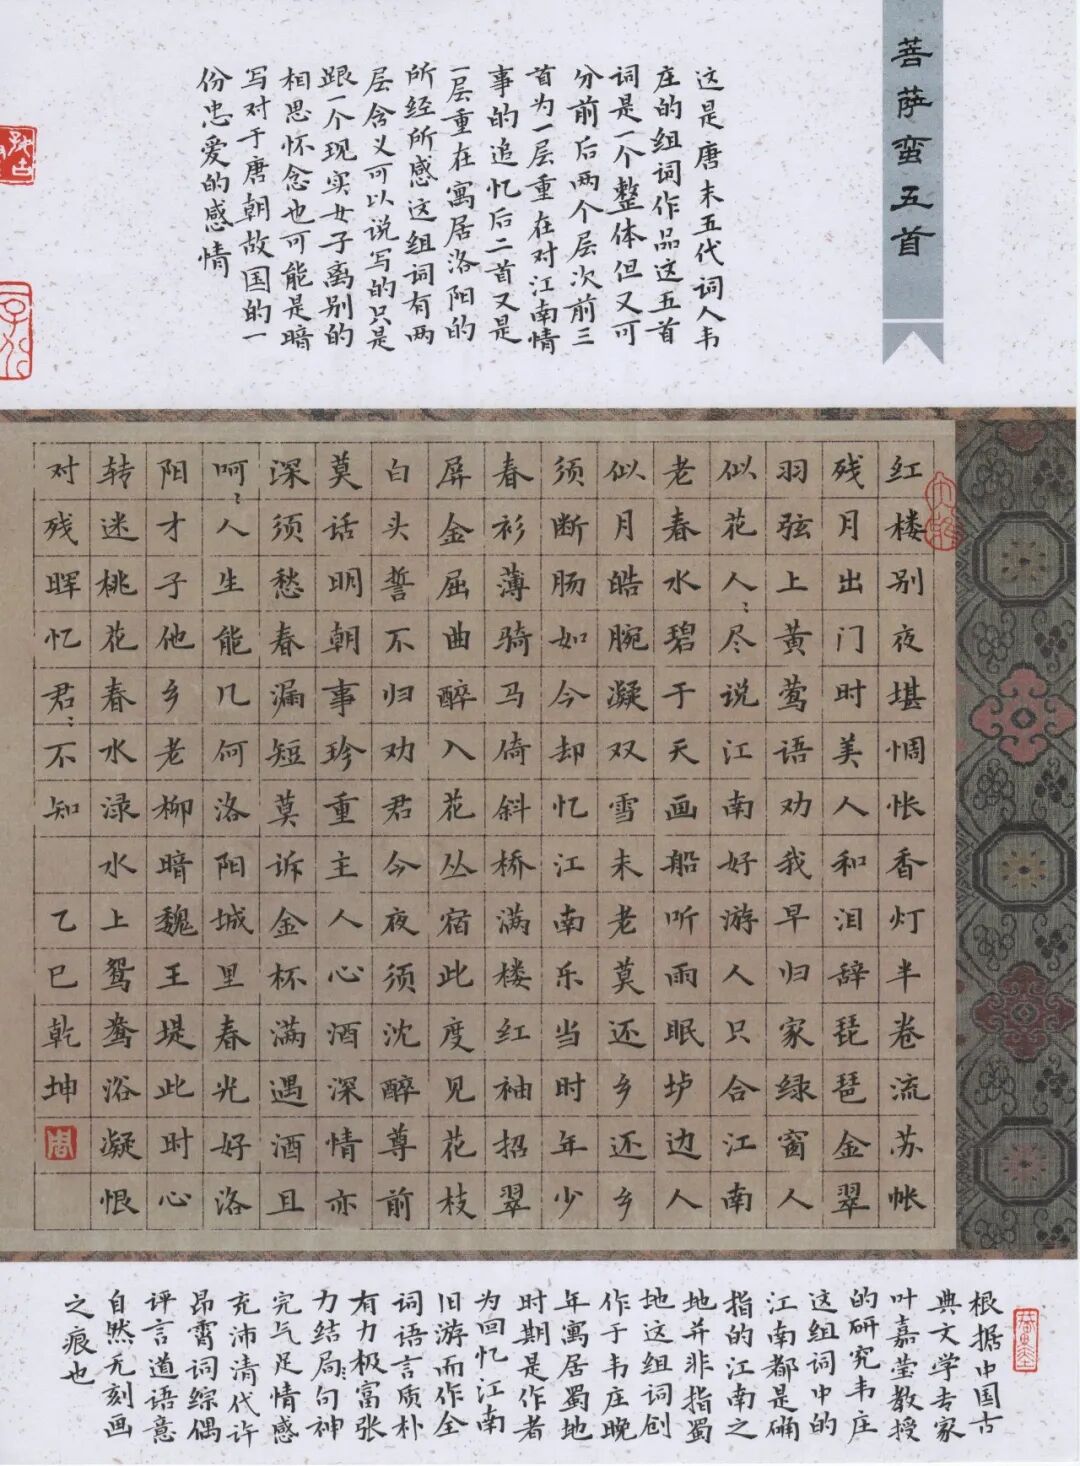 菩萨蛮五首
这是唐末五代词人韦
庄的组词作品这五首
词是一个整体但又可
分前后两个层次前三
首为一层重在对江南情
事的追忆后二首又是
一层重在寓居洛阳的
所经所感这组词有两
层含义可以说写的只是
跟一个现实女子离别的
相思怀念也可能是暗
写对于唐朝故国的一
份忠爱的感情
红楼别夜堪惆怅香灯半卷流苏帐
残月出门时美人和泪辞琵琶金翠
羽弦上黄莺语劝我早归家绿窗人
似花人：尽说江南好游人只合江南
老春水碧于天画船听雨眠垆边人
似月皓腕凝双雪未老莫还乡还乡
须断肠如今却忆江南乐当时年少
春衫薄骑马倚斜桥满楼红袖招翠
屏金屈曲醉入花丛宿此度见花枝
白头誓不归劝君今夜须沈醉尊前
莫话明朝事珍重主人心酒深情亦
深须愁春漏短莫诉金杯满遇酒且
呵：人生能几何洛阳城里春光好洛
阳才子他乡老柳暗魏王堤此时心
转迷桃花春水渌水上鸳鸯浴凝恨
对残晖忆君：不知 乙巳乾坤
周
根据中国古
典文学专家
叶嘉莹教授
的研究韦庄
这组词中的
江南都是确
指的江南之
地并非指蜀
地这组词创
作于韦庄晚
年寓居蜀地
时期是作者
为回忆江南
旧游而作全
词语言质朴
有力极富张
力结局：句神
完气足情感
充沛清代许
昂霄词综偶
评言道语意
自然无刻画
之痕也